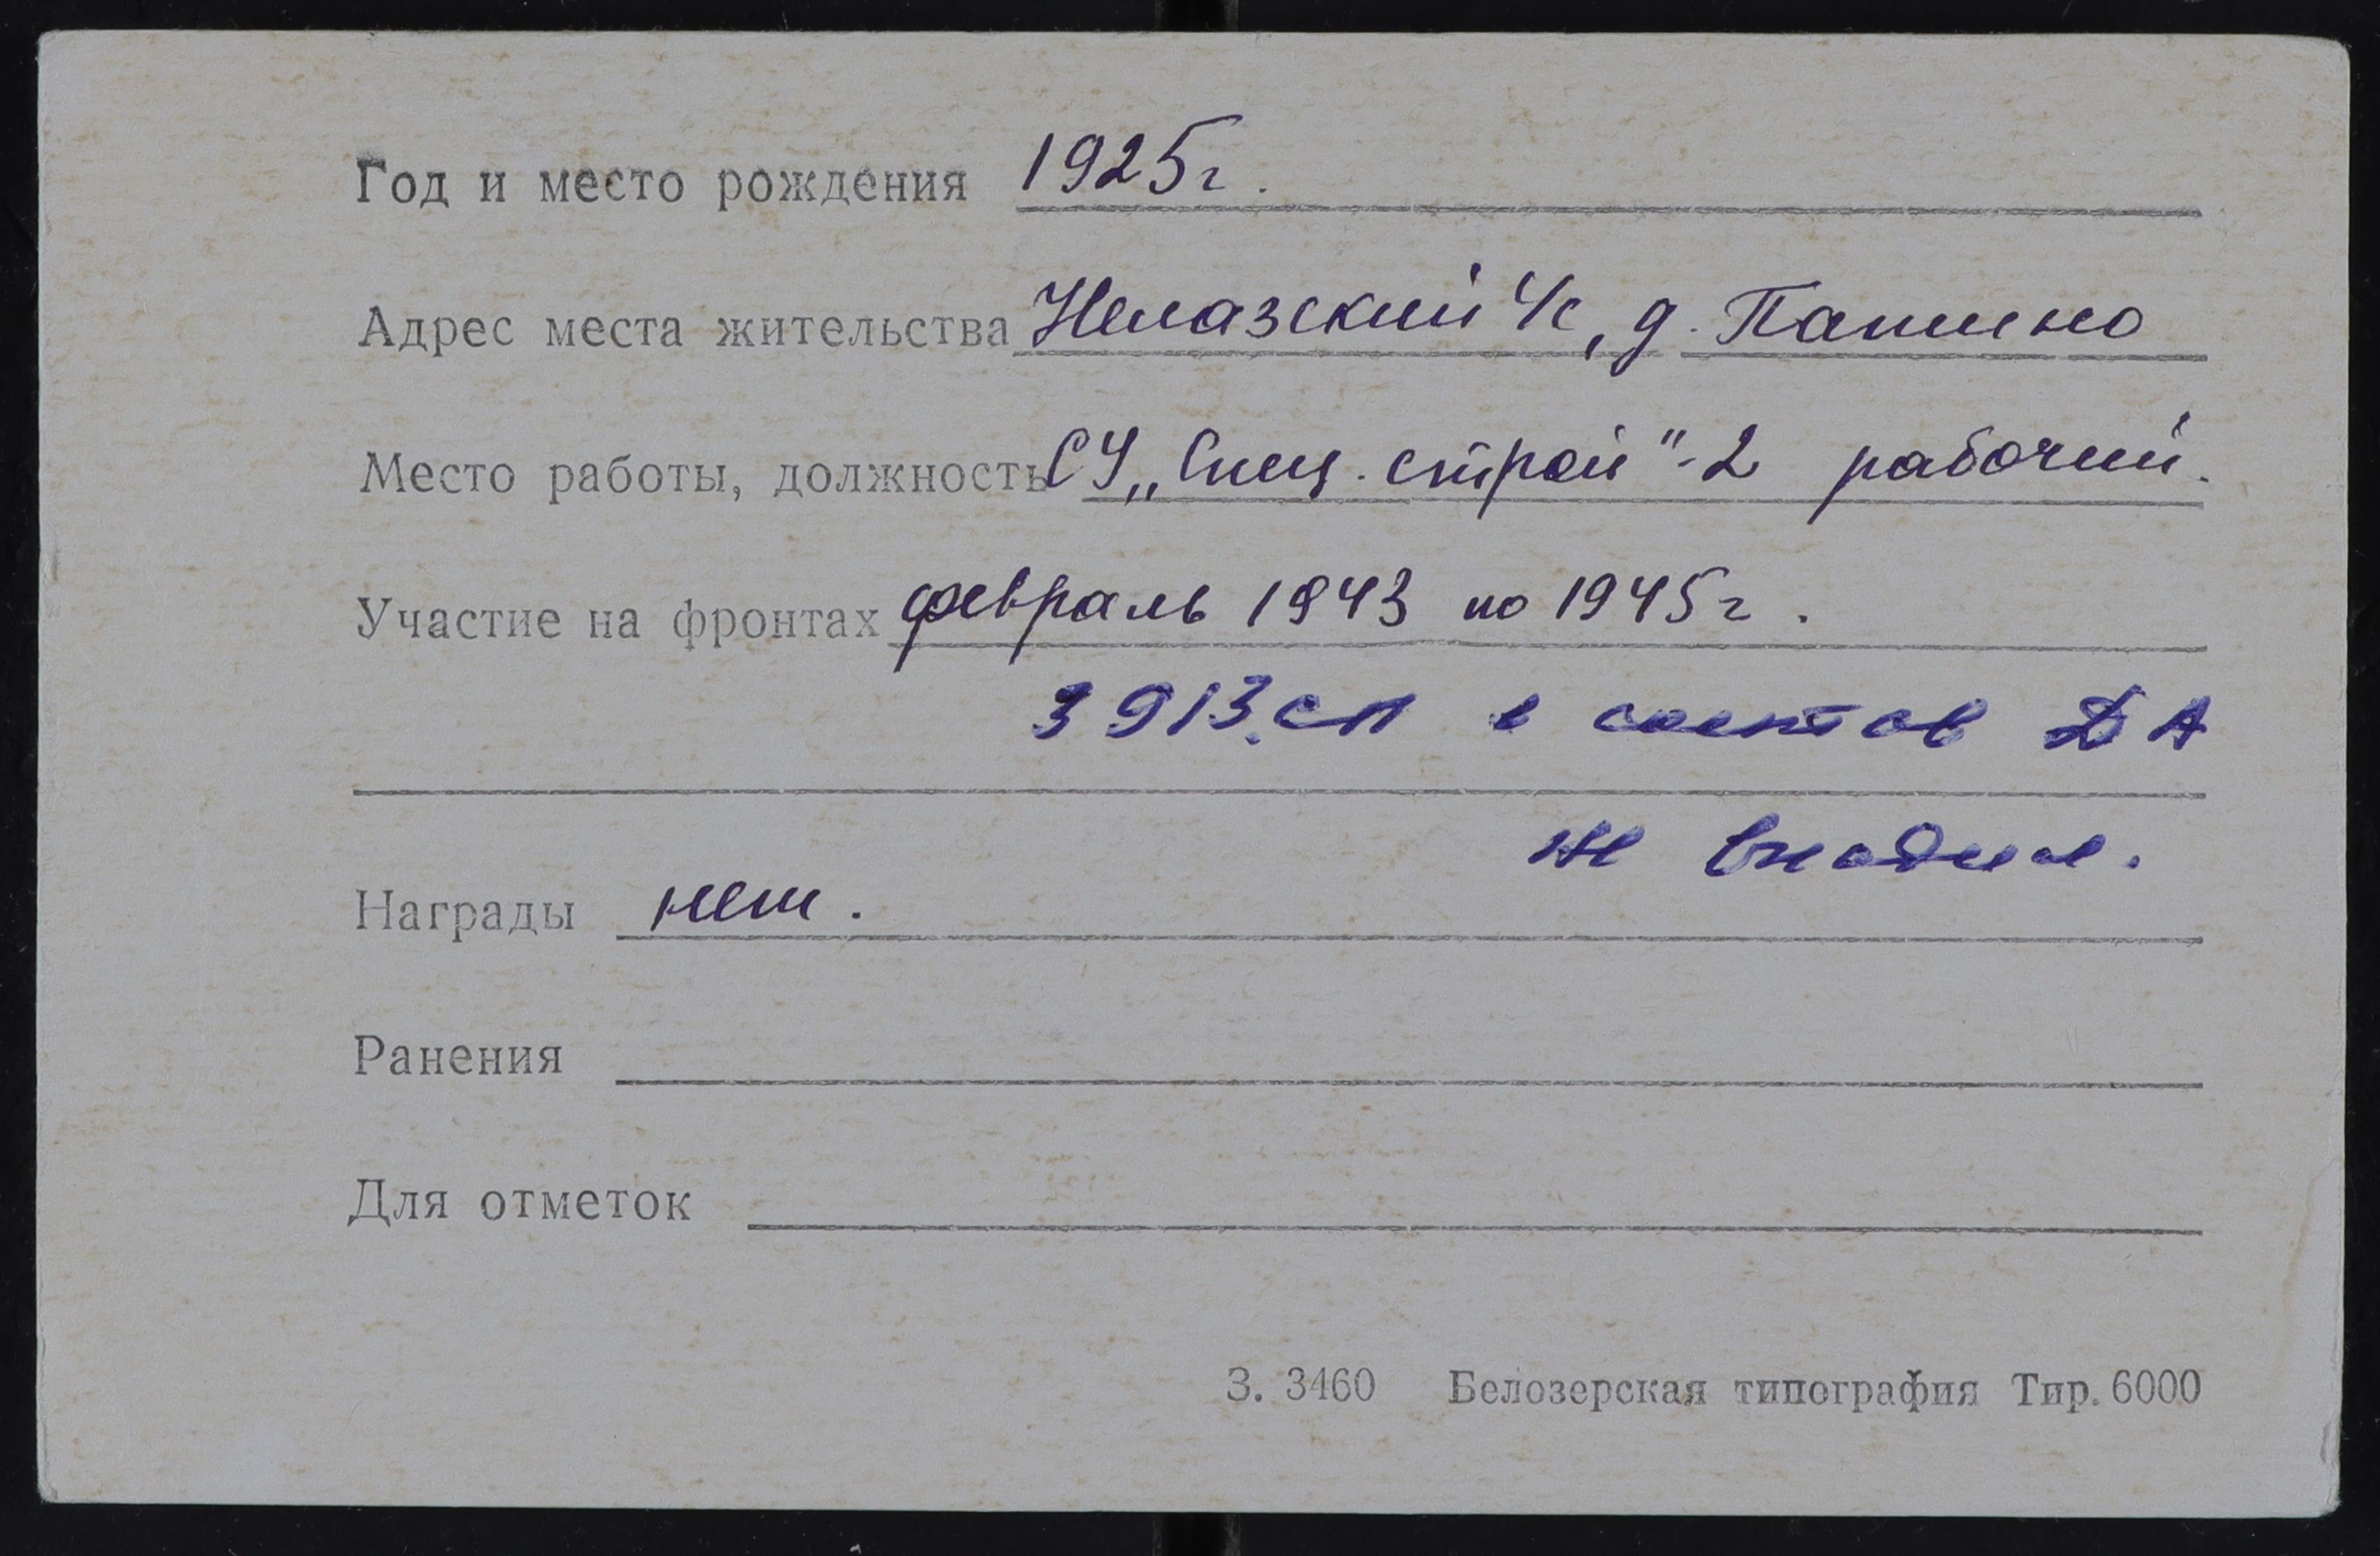 Год и место рождения 1925г.
Адрес места жительства Нелазский с/с, д. Панино
Место работы, должность СУ „Спец. строй"-2 рабочий.
Участие на фронтах февраль 1943 по 1945г.
3913.сп в состав ДА
не входил.
Награды нет.
Ранения
Для отметок
З. 3460 Белозерская типография Тир. 6000